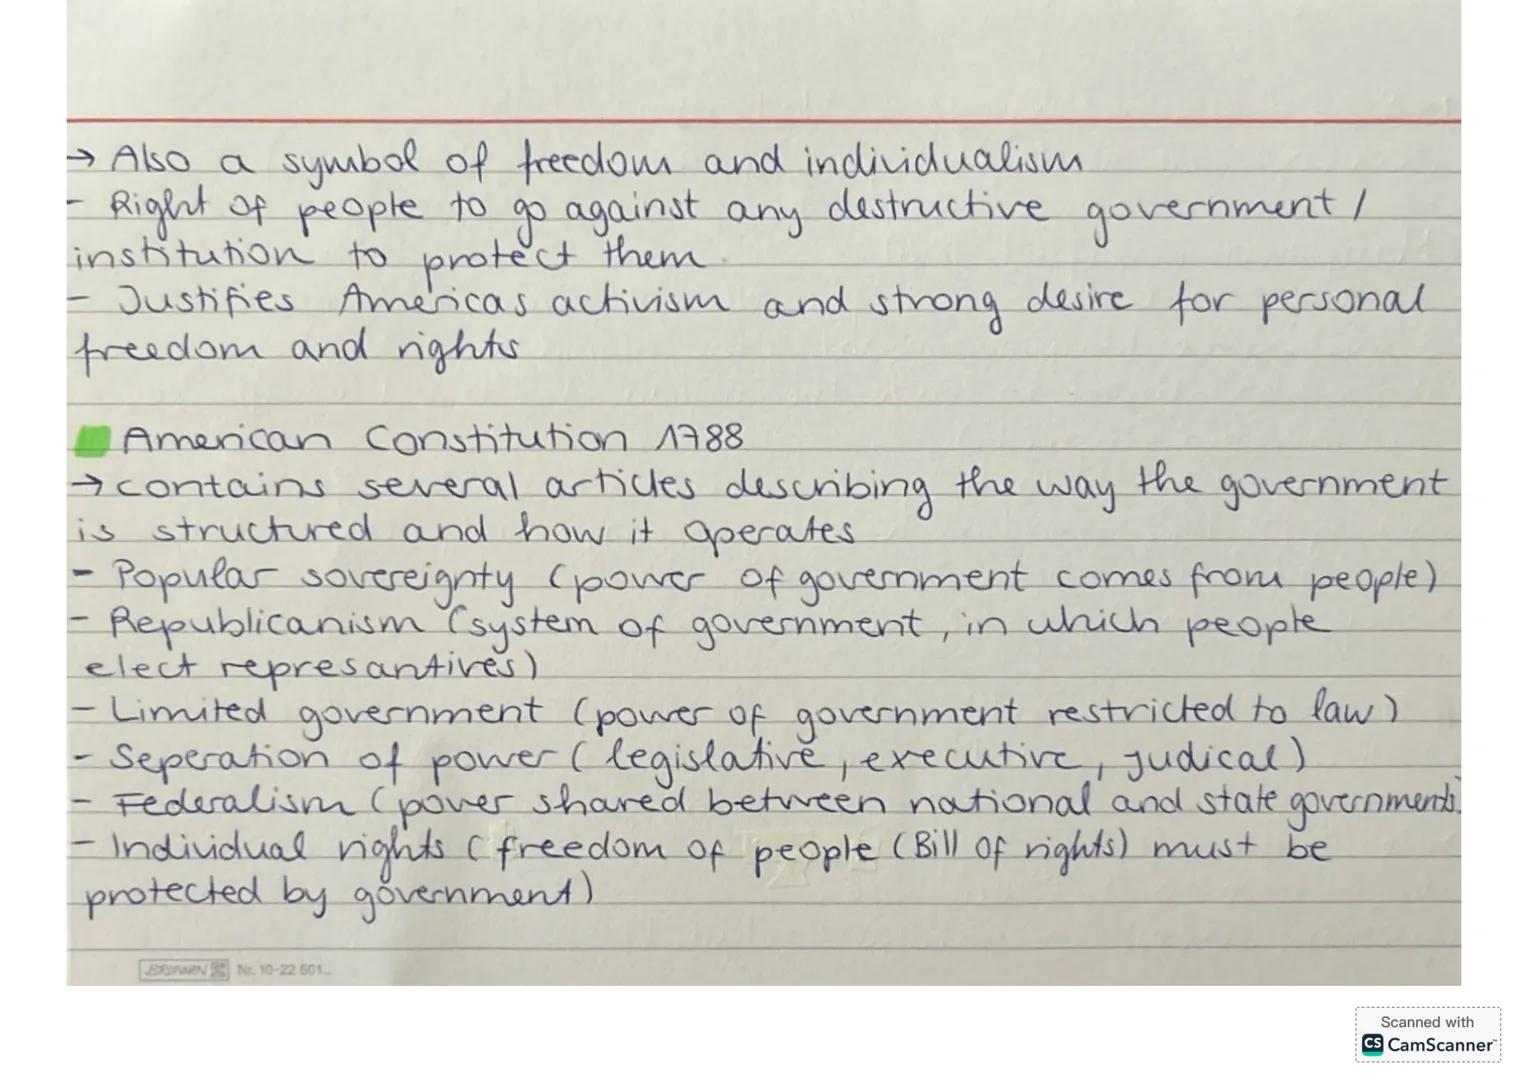 → Also a symbol of freedom and individualism
- Right of people to go against any destructive government /
institution to protect them
- Justifies Americas activism and strong desire for personal
freedom and rights
American Constitution 1788
→ contains several articles describing the way the government
is structured and how it operates
- Popular sovereignty (power of government comes from people)
- Republicanism (system of government, in which people
elect represantives)
- Limited government (power of government restricted to law)
- Seperation of power (legislative, executive, judical)
- Federalism (power shared between national and state governments)
- Individual rights (freedom of people (Bill of rights) must be
protected by government)
BRUNNEN Nr. 10-22 501
Scanned with
CS CamScanner